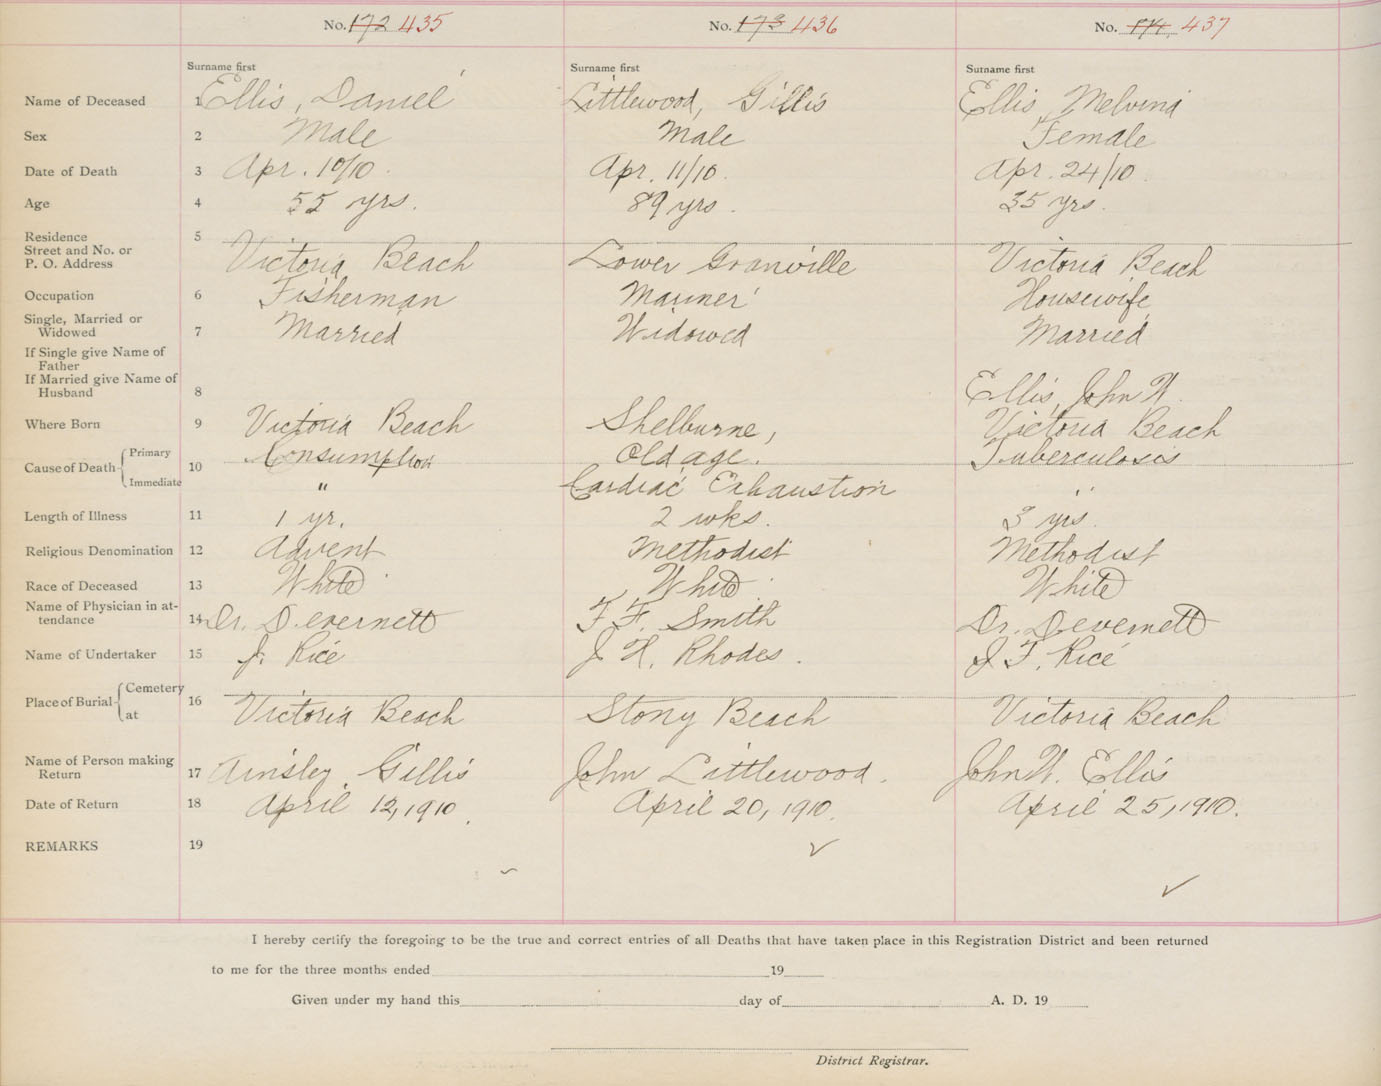 No. 172 435 No. 173 436 No. 174. 437
Surname first Surname first Surname first
Name of Deceased 1 Ellis, Daniel Littlewood, Gillis Ellis, Melvina
Sex 2 Male Male Female
Date of Death 3 Apr. 10/10. Apr. 11/10. Apr. 24/10.
Age 4 55 yrs. 89 yrs. 35 yrs.
Residence 5
Street and No. or
P. O. Address Victoria Beach Lower Granville Victoria Beach
Occupation 6 Fisherman Mariner Housewife
Single, Married or
Widowed 7 Married Widowed Married
If Single give Name of
Father
If Married give Name of
Husband 8 Ellis, John W.
Where Born 9 Victoria Beach Shelburne, Victoria Beach
Cause of Death 10 Primary Consumption Old age. Tuberculosis
Immediate " Cardiac Exhaustion "
Length of Illness 11 1 yr. 2 wks. 3 yrs.
Religious Denomination 12 Advent Methodist Methodist
Race of Deceased 13 White White White
Name of Physician in at-
tendance 14 Dr. Devernett F. F. Smith Dr. Devernett
Name of Undertaker 15 J. Rice J. H. Rhodes. J. F. Rice
Place of Burial 16 Cemetery
at Victoria Beach Stony Beach Victoria Beach
Name of Person making
Return 17 Ainsley Gillis John Littlewood. John W. Ellis
Date of Return 18 April 12, 1910. April 20, 1910. April 25, 1910.
REMARKS 19
I hereby certify the foregoing to be the true and correct entries of all Deaths that have taken place in this Registration District and been returned
to me for the three months ended 19
Given under my hand this day of A. D. 19
District Registrar.